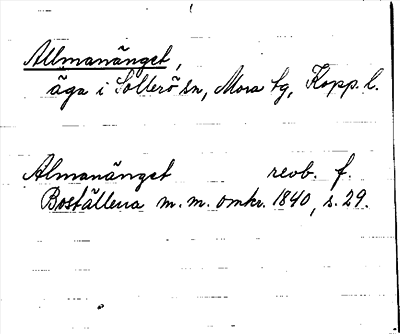 Allmanänget,
äga i Sollerö sn, Mora tg, Kopp. l.
Almanänget reob. f.
Boställena m. m. omkr. 1840, s. 29.